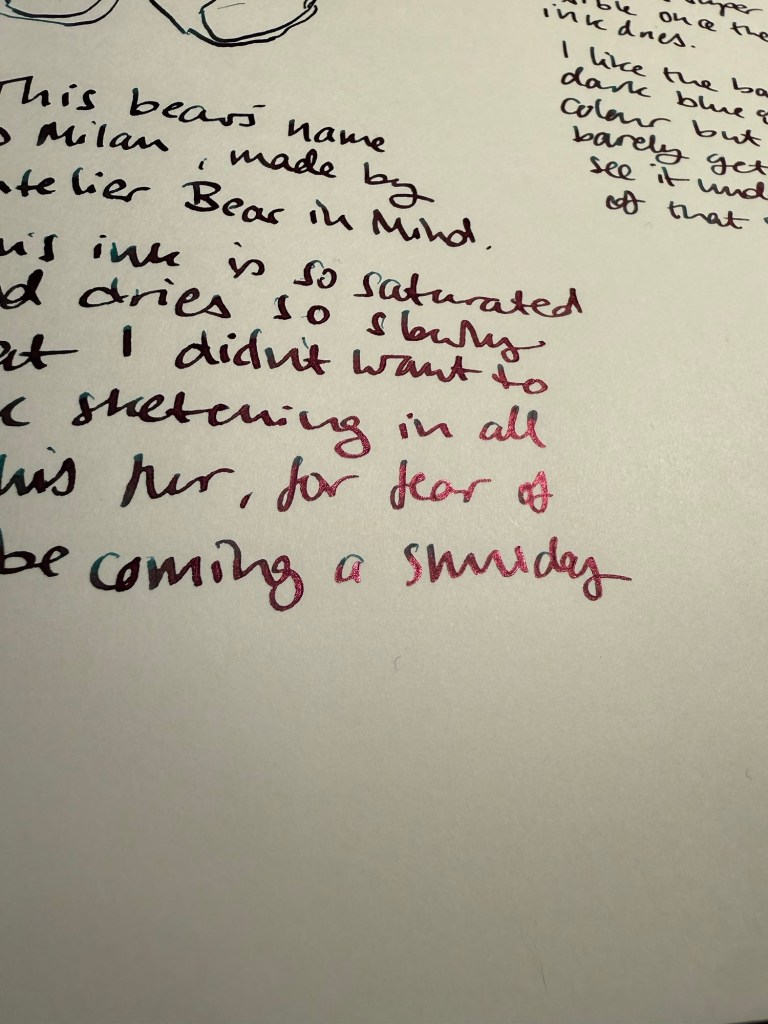 This bears name
Milan, made by
telier Bear in Mind.
is ink is so saturated
d dries so slowly
at I didn't want to
sketching in all
his fur, for fear of
becoming a smudgy
uper
ible once the
ink dries.
I like the ba
dark blue
colour but
barely get
see it und
of that